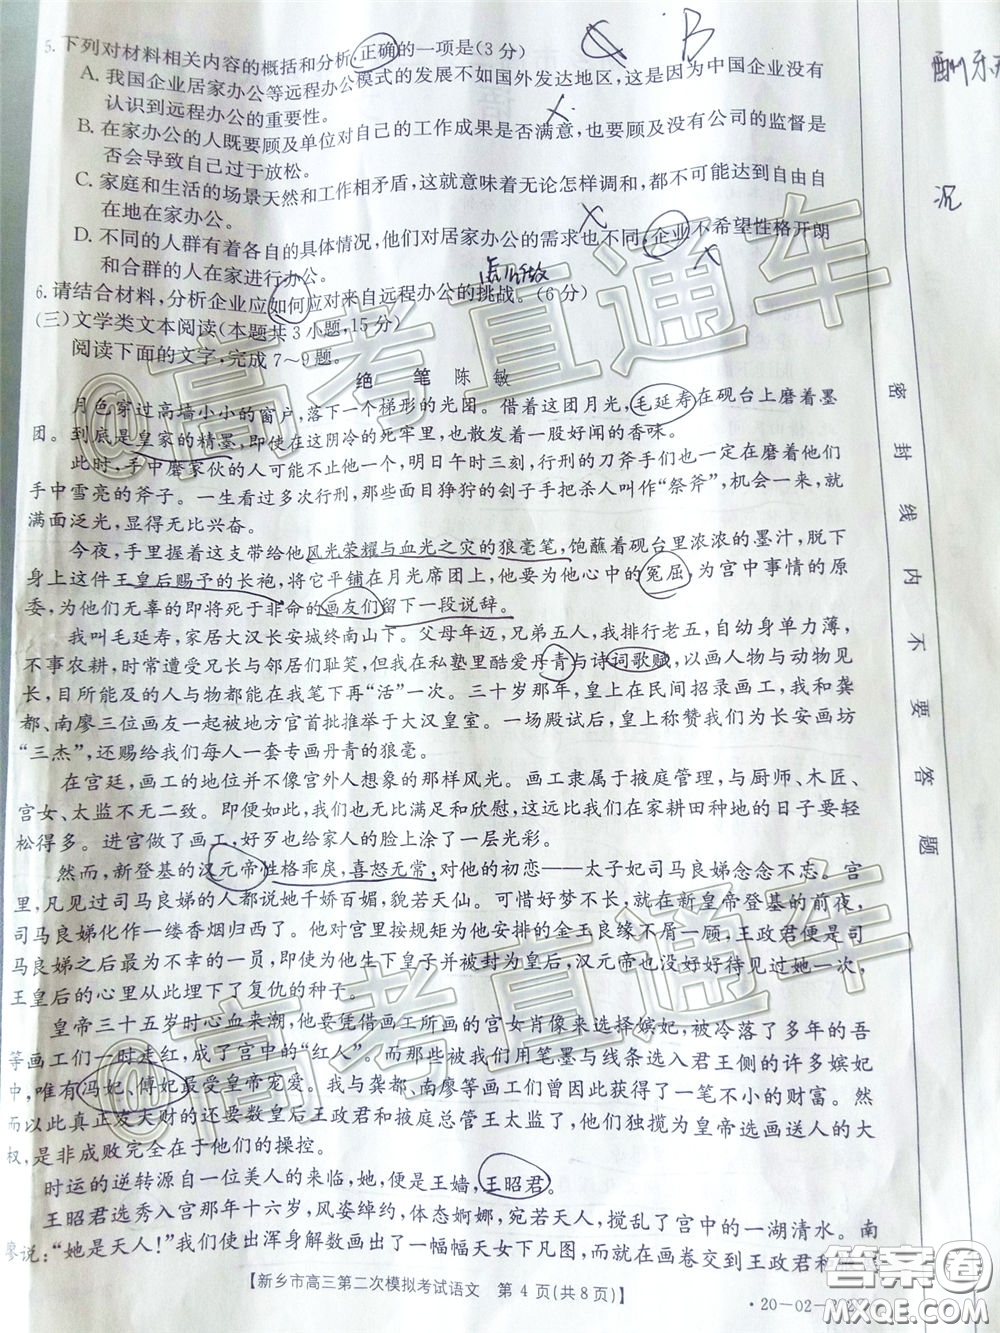 5. 下列对材料相关内容的概括和分析,正确的一项是(3 分)
B
A. 我国企业居家办公等远程办公模式的发展不如国外发达地区,这是因为中国企业没有
认识到远程办公的重要性。
B. 在家办公的人既要顾及单位对自己的工作成果是否满意,也要顾及没有公司的监督是
否会导致自己过于放松。
C. 家庭和生活的场景天然和工作相矛盾,这就意味着无论怎样调和,都不可能达到自由自
在地在家办公。
D. 不同的人群有着各自的具体情况,他们对居家办公的需求也不同,企业不希望性格开朗
和合群的人在家进行办公。
6. 请结合材料,分析企业应如何应对来自远程办公的挑战。(6 分)
(三)文学类文本阅读(本题共 3 小题,15 分)
阅读下面的文字,完成 7～9 题。
绝 笔 陈 敏
月色穿过高墙小小的窗户,落下一个梯形的光团。借着这团月光,毛延寿在砚台上磨着墨
团。到底是皇家的精墨,即使在这阴冷的死牢里,也散发着一股好闻的香味。
此时,手中磨家伙的人可能不止他一个,明日午时三刻,行刑的刀斧手们也一定在磨他们
手中雪亮的斧子。一生看过多次行刑,那些面目狰狞的刽子手把杀人叫作“祭斧”,机会一来,就
满面泛光,显得无比兴奋。
今夜,手里握着这支带给他风光荣耀与血光之灾的狼毫笔,饱蘸着砚台里浓浓的墨汁,脱下
身上这件王皇后赐予的长袍,将它平铺在月光席团上,他要为他心中的冤屈,为宫中事情的原
委,为他们无辜的即将死于非命的画友们留下一段说辞。
我叫毛延寿,家居大汉长安城终南山下。父母年迈,兄弟五人,我排行老五,自幼身单力薄,
不事农耕,时常遭受兄长与邻居们耻笑,但我在私塾里酷爱丹青与诗词歌赋,以画人物与动物见
长,目所能及的人与物都能在我笔下再“活”一次。三十岁那年,皇上在民间招录画工,我和龚
都、南廖三位画友一起被地方官首批推举于大汉皇室。一场殿试后,皇上称赞我们为长安画坊
“三杰”,还赐给我们每人一套专画丹青的狼毫。
在宫廷,画工的地位并不像宫外人想象的那样风光。画工隶属于掖庭管理,与厨师、木匠、
宫女、太监不无二致。即便如此,我们也无比满足和欣慰,这毕竟比我们在家耕田种地的日子要轻
松得多。进宫做了画工,好歹也给家人的脸上涂了一层光彩。
然而,新登基的汉元帝性格乖戾,喜怒无常,对他的初恋——太子妃司马良娣念念不忘。宫
里,凡见过司马良娣的人都说她千娇百媚,貌若天仙。可惜好梦不长,就在新皇帝登基的前夜,
司马良娣化作一缕香烟归西了。他对宫里按规矩为他安排的金玉良缘不屑一顾,王政君便是司
马良娣之后最为不幸的一员,即使为他生下皇子并被封为皇后,汉元帝也没好好待见过她一次,
王皇后的心里从此埋下了复仇的种子。
皇帝三十五岁时心血来潮,他要凭借画工所画的宫女肖像来选择嫔妃,被冷落了多年的吾
等画工们一时走红,成了宫中的“红人”。而那些被我们用笔墨与线条选入君王侧的许多嫔妃
中,唯有冯妃、傅妃最受皇帝宠爱。我与龚都、南廖等画工们曾因此获得了一笔不小的财富。然
而以此真正发大财的还要数皇后王政君和掖庭总管王太监了,他们独揽为皇帝选画送人的大
权,是非成败完全在于他们的操控。
时运的逆转源自一位美人的来临,她,便是王嫱,王昭君。
王昭君选秀入宫那年十六岁,风姿绰约,体态婀娜,宛若天人,搅乱了宫中的一湖清水。南
廖说:“她是天人!”我们使出浑身解数画出了一幅幅天女下凡图,就在画卷交到王政君和
【新乡市高三第二次模拟考试语文　第 4 页(共 8 页)】
·20-02-
密封线内不要答题
沉
@高考直通车
@高考直通车
答案圈
MXQE.COM